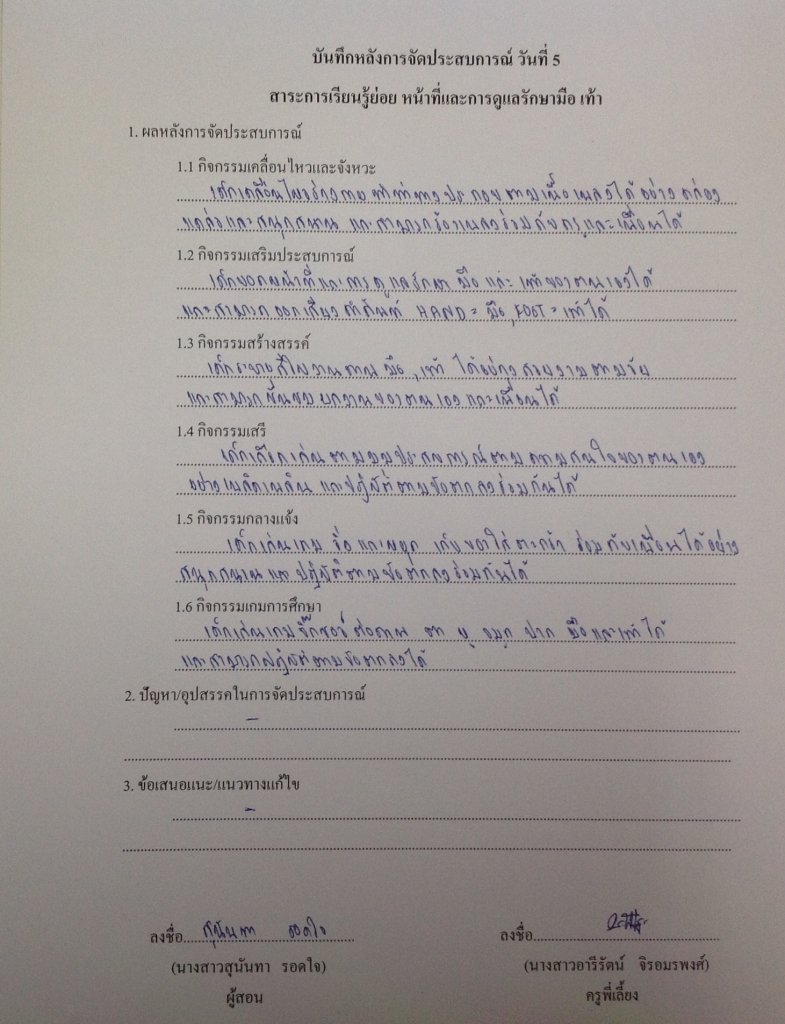 บันทึกหลังการจัดประสบการณ์ วันที่ 5
สาระการเรียนรู้ย่อย หน้าที่และการดูแลรักษามือ เท้า
1. ผลหลังการจัดประสบการณ์
1.1 กิจกรรมเคลื่อนไหวและจังหวะ
เด็กเคลื่อนไหวร่างกาย ทำท่าทางประกอบตามเนื้อเพลงได้ อย่างคล่อง
แคล่วและสนุกสนาน และสามารถร้องเพลงร่วมกับครูและเพื่อนได้
1.2 กิจกรรมเสริมประสบการณ์
เด็กบอกหน้าที่และการดูแลรักษา มือ และ เท้าของตนเองได้
และสามารถออกเสียงคำศัพท์ HAND = มือ, FOOT = เท้าได้
1.3 กิจกรรมสร้างสรรค์
เด็กระบายสีใบงานภาพ มือ, เท้า ได้อย่างสวยงามตามวัย
และสามารถชื่นชมผลงานของตนเองและเพื่อนได้
1.4 กิจกรรมเสรี
เด็กเลือกเล่นตามมุมประสบการณ์ตามความสนใจของตนเอง
อย่างเพลิดเพลิน และปฏิบัติตามข้อตกลงร่วมกันได้
1.5 กิจกรรมกลางแจ้ง
เด็กเล่นเกม วิ่งและหยุด เก็บของใส่ตะกร้า ร่วมกับเพื่อนได้อย่าง
สนุกสนานและปฏิบัติตามข้อตกลงร่วมกันได้
1.6 กิจกรรมเกมการศึกษา
เด็กเล่นเกมจิ๊กซอว์ต่อภาพ ตา หู จมูก ปาก มือและเท้าได้
และสามารถปฏิบัติตามข้อตกลงได้
2. ปัญหา/อุปสรรคในการจัดประสบการณ์
-
3. ข้อเสนอแนะ/แนวทางแก้ไข
-
ลงชื่อ สุนันทา รอดใจ ลงชื่อ
(นางสาวสุนันทา รอดใจ) (นางสาวอารีรัตน์ จิรอมรพงศ์)
ผู้สอน ครูพี่เลี้ยง